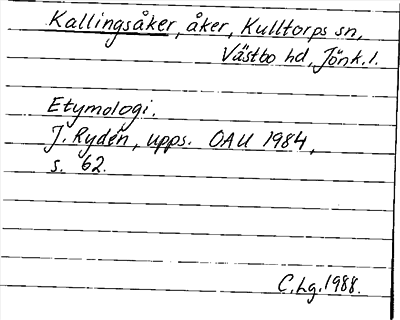 Kallingsåker, åker, Kulltorps sn,
Västbo hd, Jönk. l.
Etymologi.
J. Rydén, upps. OAU 1984,
s. 62.
C. Lg. 1988.